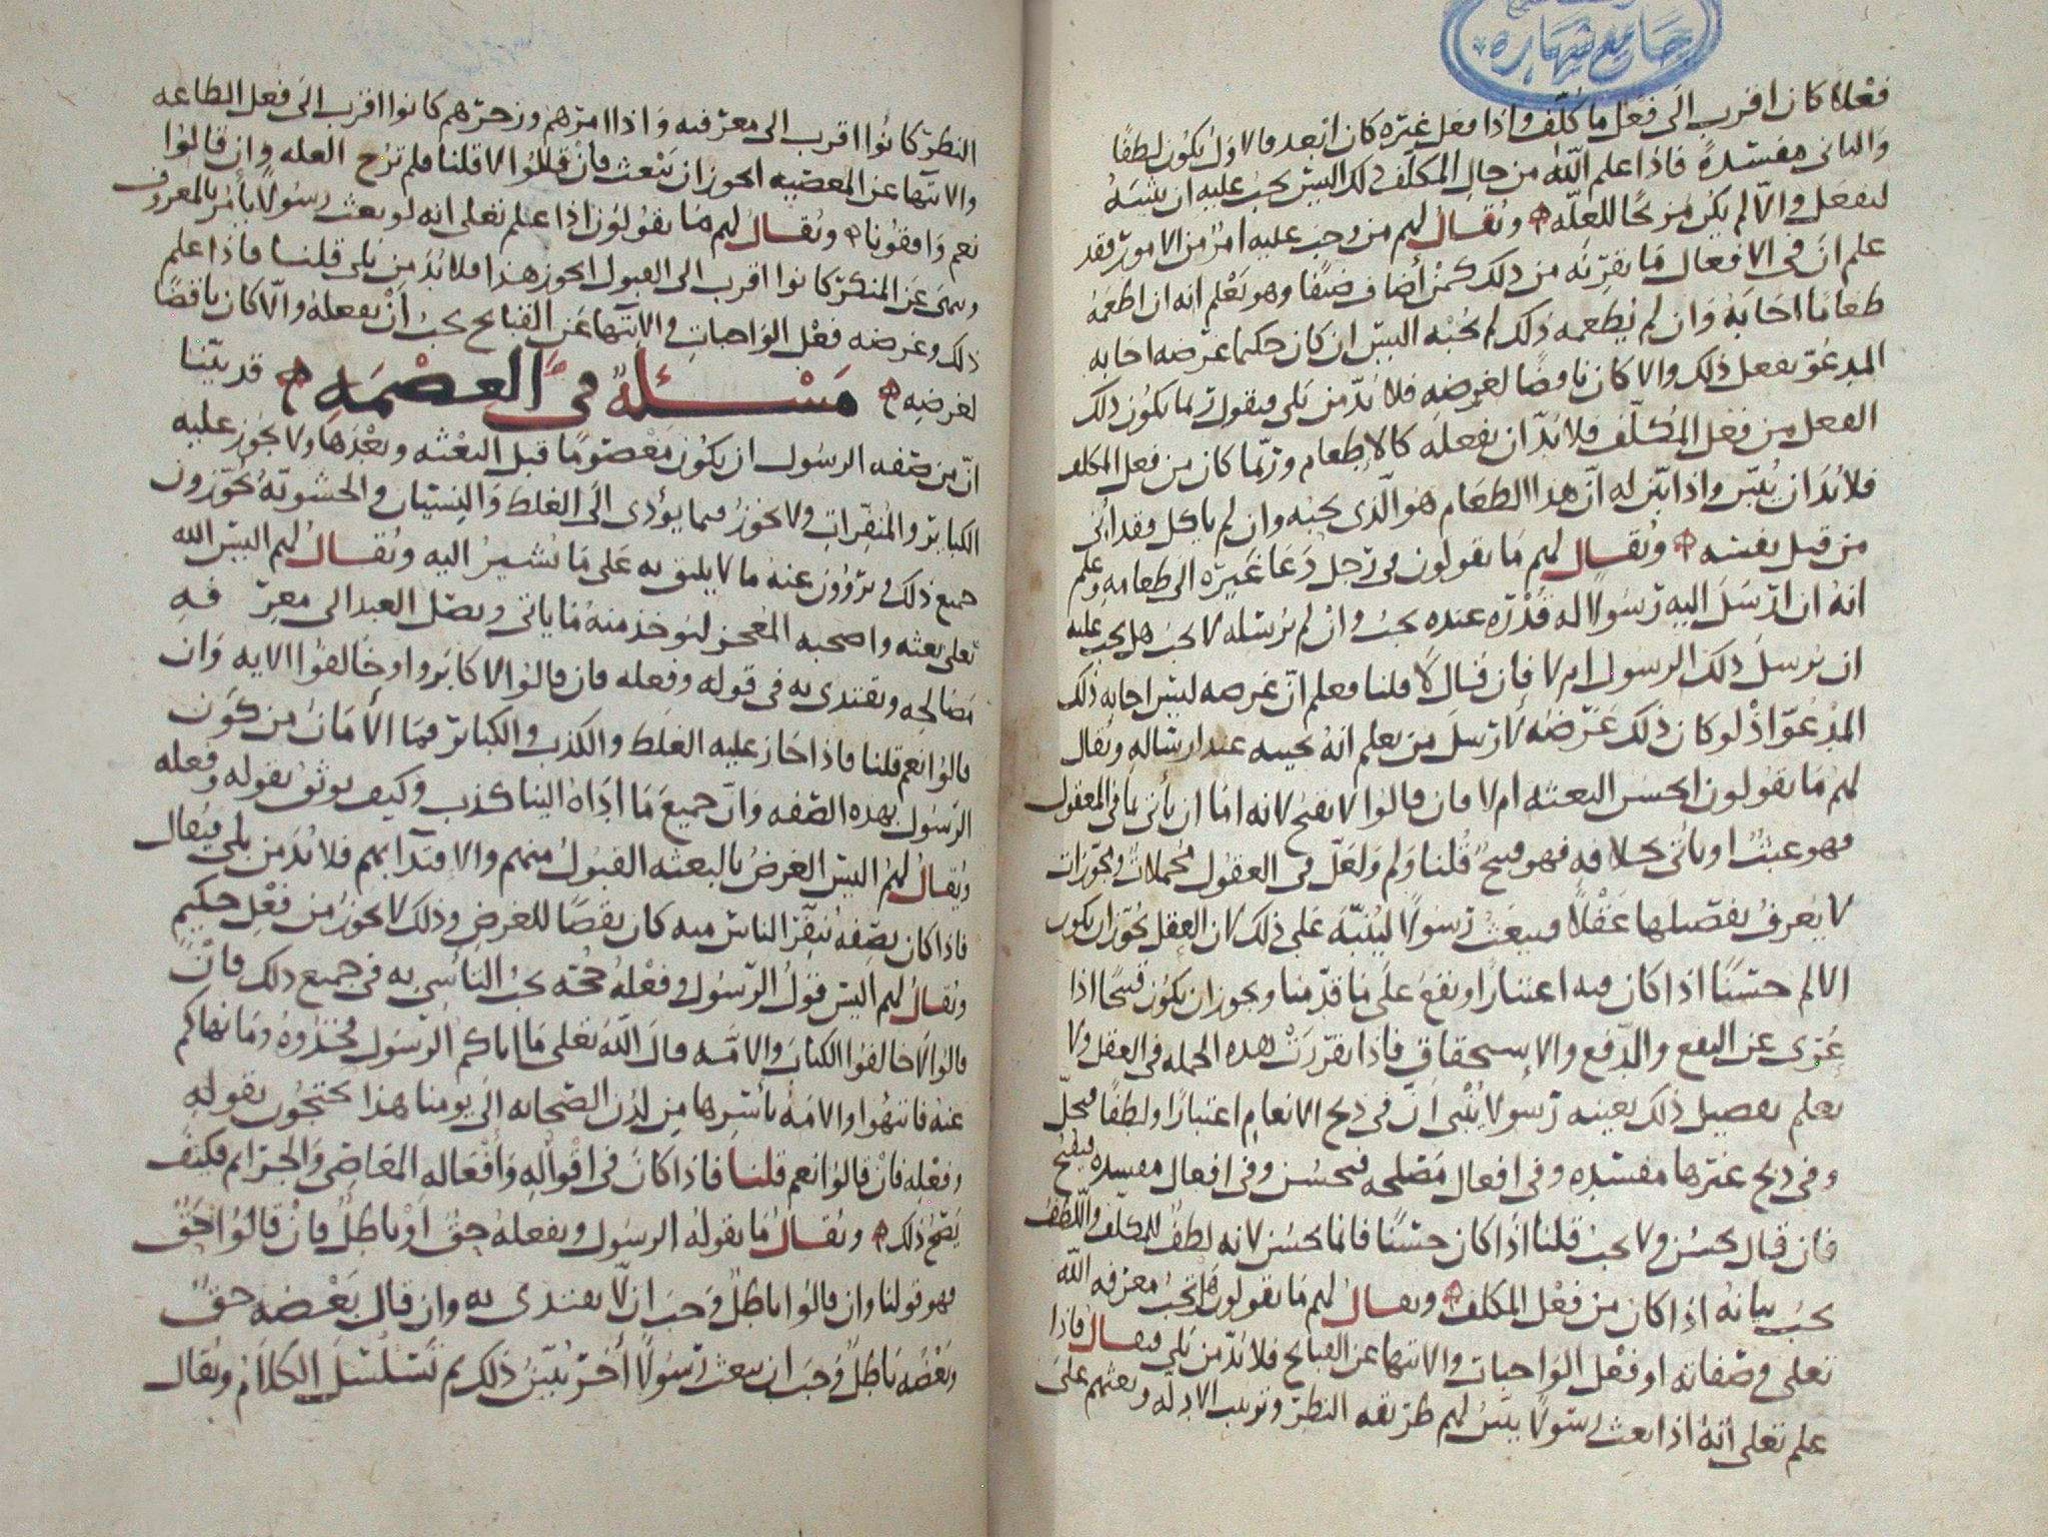 جامع شهاره
فعلا كان اقرب الى فعل ما كلف واذا فعل غيره كان ابعد فالاول يكون لطفا
والثاني مفسدة فاذا علم الله من حال المكلف ذلك اليس يجب عليه ان يثيبه
ليفعل والا لم يكن مزيحا للعلة ويقال لهم من وجب عليه امر من الامور فقد
علم ان في الافعال ما يقربه من ذلك كمن أضاف ضيفا وهو يعلم انه ان اطعمه
طعاما اجابه وان لم يطعمه ذلك لم يجبه اليس ان كان حكيما غرضه اجابه
المدعو يفعل ذلك والا كان ناقضا لغرضه فلا بد من بلى فيقول ربما يكون ذلك
الفعل من فعل المكلف فلا بد ان يفعله كالاطعام وربما كان من فعل المكلف
فلا بد ان يبين واذا بين له ان هذا الطعام هو الذي يجبه وان لم ياكل فقد أتى
من قبل نفسه ويقال لهم ما يقولون في رجل دعا غيره الى طعامه وعلم
انه ان ارسل اليه رسولا له قدره عنده يجب وان لم يرسله لا يجب هل يجب عليه
ان يرسل ذلك الرسول ام لا فان قال لا قلنا فعلم ان غرضه ليس اجابه ذلك
المدعو اذ لو كان ذلك غرضه لارسل من يعلم انه يجيبه عند ارساله ويقال
لهم ما يقولون ايحسن البعثه ام لا فان قالوا لا يقبح لانه اما ان يأتي بما في المعقول
فهو عبث او يأتي بخلافه فهو قبيح قلنا ولم ولعل في العقول مجملات ومجوزات
لا يعرف تفصيلها عقلا فيبعث رسولا لينبه على ذلك لان العقل يجوز ان يكون
الالم حسنا اذا كان فيه اعتبارا ونفع على ما قدمنا ويجوز ان يكون قبيحا اذا
عري عن النفع والدفع والاستحقاق فاذا تقررت هذه الجمله في العقل ولا
يعلم تفصيل ذلك بعينه رسولا ينبي ان في ذبح الانعام اعتبارا ولطفا فيحل
وفي ذبح غيرها مفسده وفي افعال مصلحه فيحسن وفي افعال مفسده فيقبح
فان قال يحسن ولا يجب قلنا اذا كان حسنا فانما يحسن لانه لطف للمكلف واللطف
يجب بيانه اذا كان من فعل المكلف ويقال لهم ما يقولون هل تجب معرفه الله
تعلى وصفاته او فعل الواجبات والانتها عن القبايح فلا بد من بلى فيقال فاذا
علم تعلى انه اذا بعث رسولا يبين لهم طريقه النظر وترتيب الادله وبعثهم على
النظر كانوا اقرب الى معرفته واذا امرهم وزجرهم كانوا اقرب الى فعل الطاعه
والانتها عن المعصيه ايجوز ان يبعث فان قالوا لا قلنا فلم تزح العله وان قالوا
نعم وافقونا ويقال لهم ما يقولون اذا علم تعلى انه لو بعث رسولا يأمر بالمعروف
وينهى عن المنكر كانوا اقرب الى القبول ايجوز هذا فلا بد من بلى قلنا فاذا علم
ذلك وغرضه فعل الواجبات والانتها عن القبايح يجب أن يفعله والا كان ناقضا
لغرضه مسئلة في العصمه قد بينا
ان من صفه الرسول ان يكون معصوما قبل البعثه وبعدها ولا يجوز عليه
الكباير والمنفرات ولا يجوز فيما يؤدي الى الغلط والنسيان والحشوية يجوزون
جميع ذلك ويروون عنه ما لا يليق به على ما نشير اليه ويقال لهم اليس الله
تعلى بعثه واصحبه المعجز ليوخذ منه ما ياتي ويصل العبد الى معرفه
مصالحه ويقتدى به في قوله وفعله فان قالوا لا كابروا وخالفوا الايه وان
قالوا نعم قلنا فاذا جاز عليه الغلط والكذب والكباير فما الأمان من كون
الرسول بهذه الصفه وان جميع ما اداه الينا كذب وكيف يوثق بقوله وفعله
ويقال لهم اليس الغرض بالبعثه القبول منهم والاقتدا بهم فلا بد من بلى فيقال
فاذا كان بصفه ينفر الناس منه كان نقضا للغرض وذلك لا يجوز من فعل حكيم
ويقال لهم اليس قول الرسول وفعله حجه يجب التأسي به في جميع ذلك فان
قالوا لا خالفوا الكتاب والامه قال الله تعلى ما اتاكم الرسول فخذوه وما نهاكم
عنه فانتهوا والامه بأسرها من لدن الصحابه الى يومنا هذا يحتجون بقوله
وفعله فان قالوا نعم قلنا فاذا كان في اقواله وأفعاله المعاصي والجرايم فكيف
يصح ذلك ويقال ما يقوله الرسول ويفعله حق او باطل فان قالوا حق
فهو قولنا وان قالوا باطل وجب ان لا يقتدى به وان قال بعضه حق
وبعضه باطل وجب ان يبعث رسولا أخر يبين ذلك ثم يتسلسل الكلام ويقال